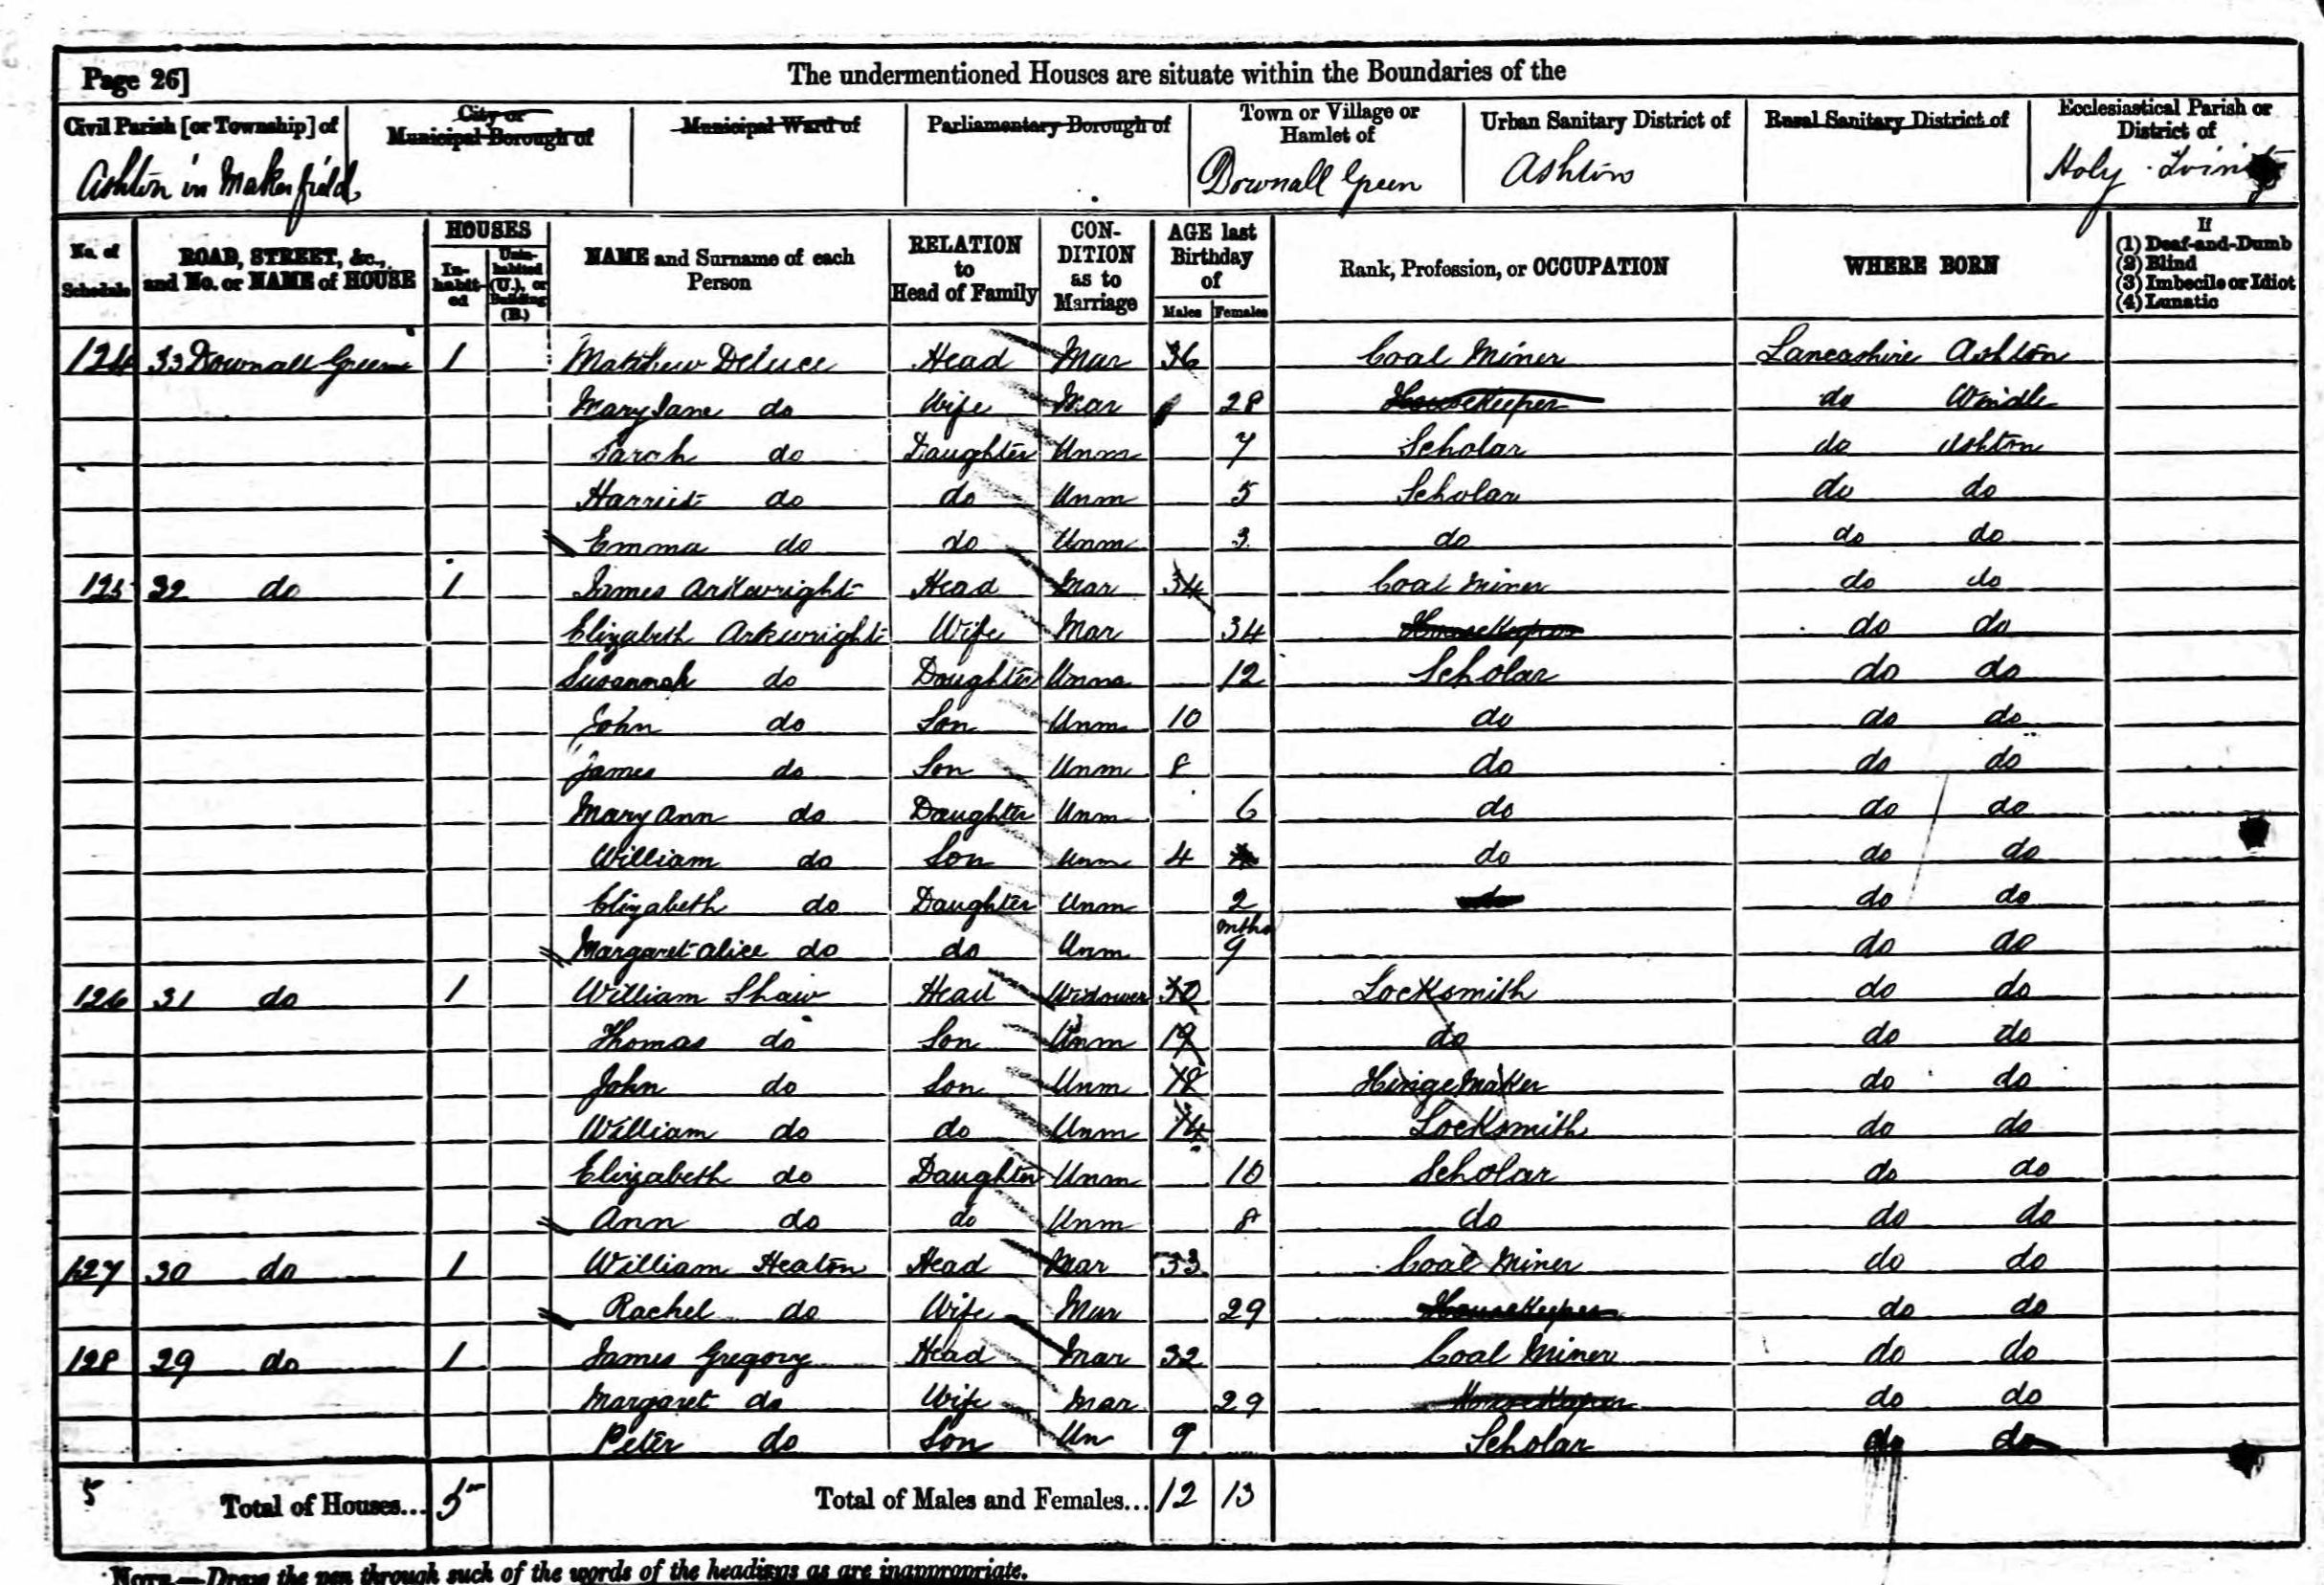 Page 26]
The undermentioned Houses are situate within the Boundaries of the
Civil Parish [or Township] of
City or Municipal Borough of
Municipal Ward of
Parliamentary Borough of
Town or Village or Hamlet of
Urban Sanitary District of
Rural Sanitary District of
Ecclesiastical Parish or District of
Ashton in Makerfield
Downall Green
Ashton
Holy Trinity
No. of Schedule
ROAD, STREET, &c., and No. or NAME of HOUSE
HOUSES
In-habit-ed
Unin-habited (U.), or Building (B.)
NAME and Surname of each Person
RELATION to Head of Family
CON-DITION as to Marriage
AGE last Birthday of
Males
Females
Rank, Profession, or OCCUPATION
WHERE BORN
If
(1) Deaf-and-Dumb
(2) Blind
(3) Imbecile or Idiot
(4) Lunatic
124 33 Downall Green 1 Matthew Deluce Head Mar 36 Coal Miner Lancashire Ashton
Mary Jane do Wife Mar 28 Housekeeper do Windle
Sarah do Daughter Unm 7 Scholar do Ashton
Harriet do do Unm 5 Scholar do do
Emma do do Unm 3 do do do
125 32 do 1 James Arkwright Head Mar 34 Coal Miner do do
Elizabeth Arkwright Wife Mar 34 Housekeeper do do
Susannah do Daughter Unm 12 Scholar do do
John do Son Unm 10 do do do
James do Son Unm 8 do do do
Mary Ann do Daughter Unm 6 do do do
William do Son Unm 4 do do do
Elizabeth do Daughter Unm 2 do do do
Margaret Alice do do Unm mths 9 do do
126 31 do 1 William Shaw Head Widower Locksmith do do
Thomas do Son Unm 19 do do do
John do Son Unm 18 Hinge Maker do do
William do do Unm 14 Locksmith do do
Elizabeth do Daughter Unm 10 Scholar do do
Ann do do Unm 8 do do do
127 30 do 1 William Heaton Head Mar 33 Coal Miner do do
Rachel do Wife Mar 29 Housekeeper do do
128 29 do 1 James Gregory Head Mar 32 Coal Miner do do
Margaret do Wife Mar 29 Housekeeper do do
Peter do Son Un 9 Scholar do do
5 Total of Houses... 5 Total of Males and Females... 12 13
NOTE.—Draw the pen through such of the words of the headings as are inappropriate.